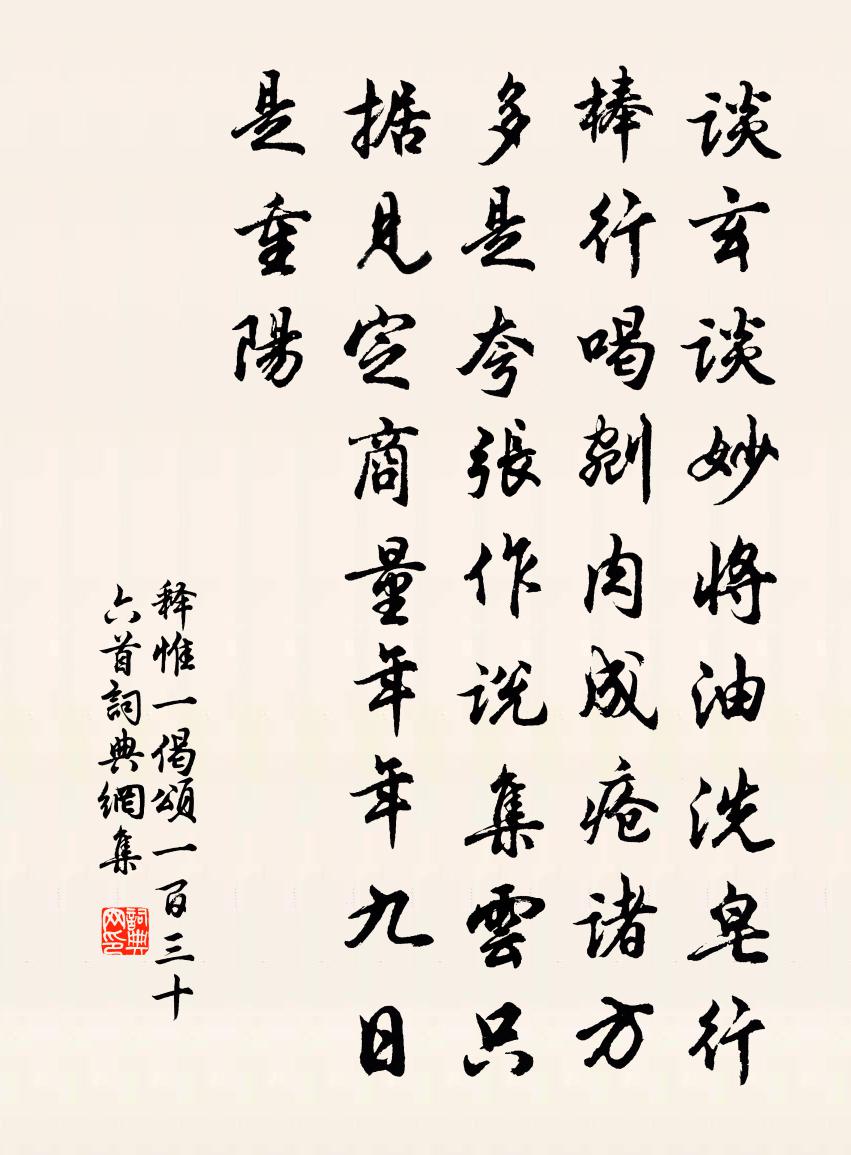 谈玄谈妙将油洗皂行
棒行喝剜肉成疮诸方
多是夸張作说集雲只
据見定商量年年九日
是重陽
释惟一偈頌一百三十
六首詞典網集
詞典网印